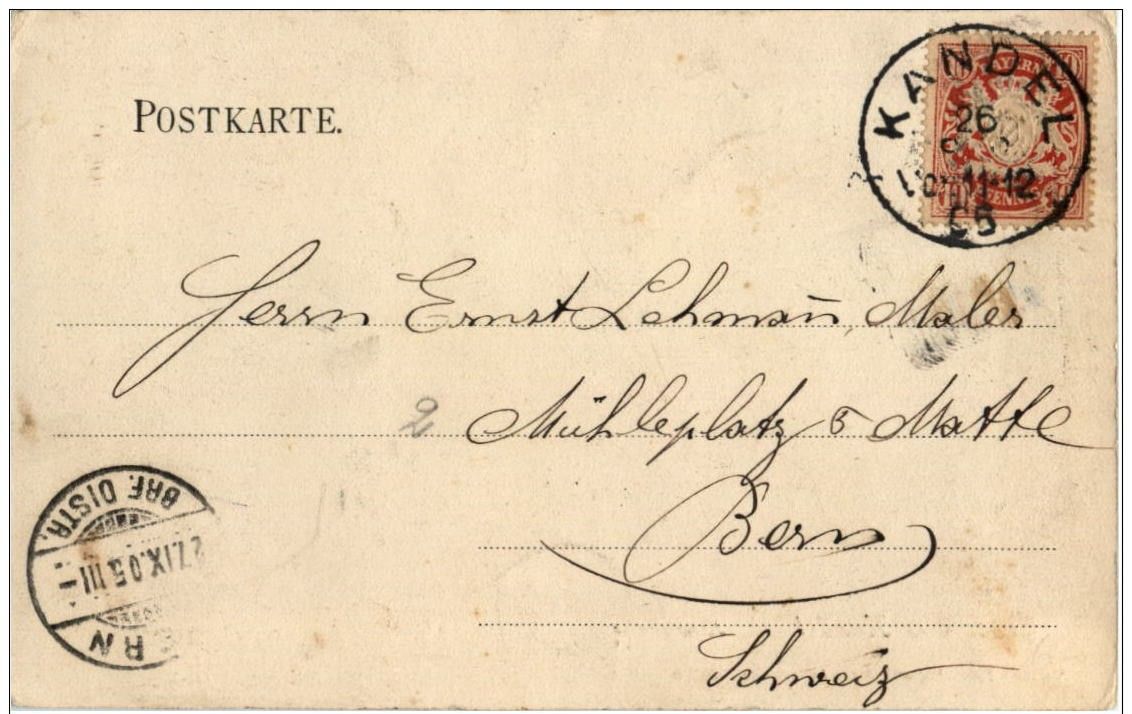 POSTKARTE.
KANDEL
26
11-12
05
BAYERN
Herrn Ernst Lehmann, Maler
2
Mühleplatz 5 Matte
Bern
Schweiz
BRF. DISTR.
27.IX.05.III
ERN